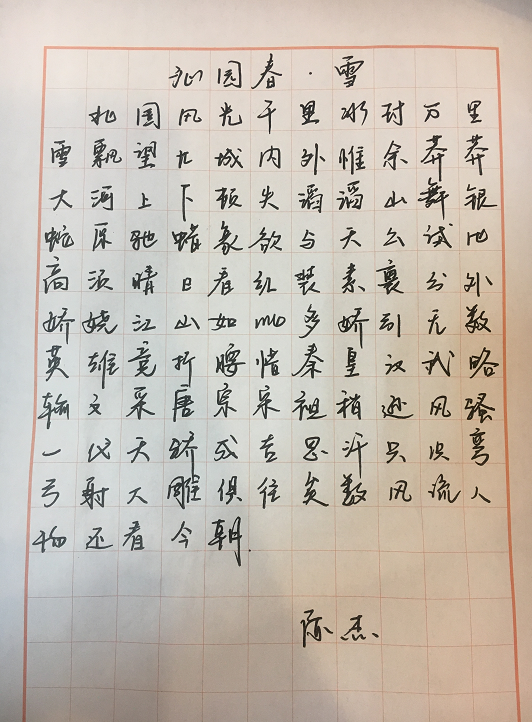 沁园春·雪
北国风光千里冰封万里
雪飘望长城内外惟余莽莽
大河上下顿失滔滔山舞银
蛇原驰蜡象欲与天公试比
高须晴日看红装素裹分外
娇娆江山如此多娇引无数
英雄竞折腰惜秦皇汉武略
输文采唐宗宋祖稍逊风骚
一代天骄成吉思汗只识弯
弓射大雕俱往矣数风流人
物还看今朝.
陈杰